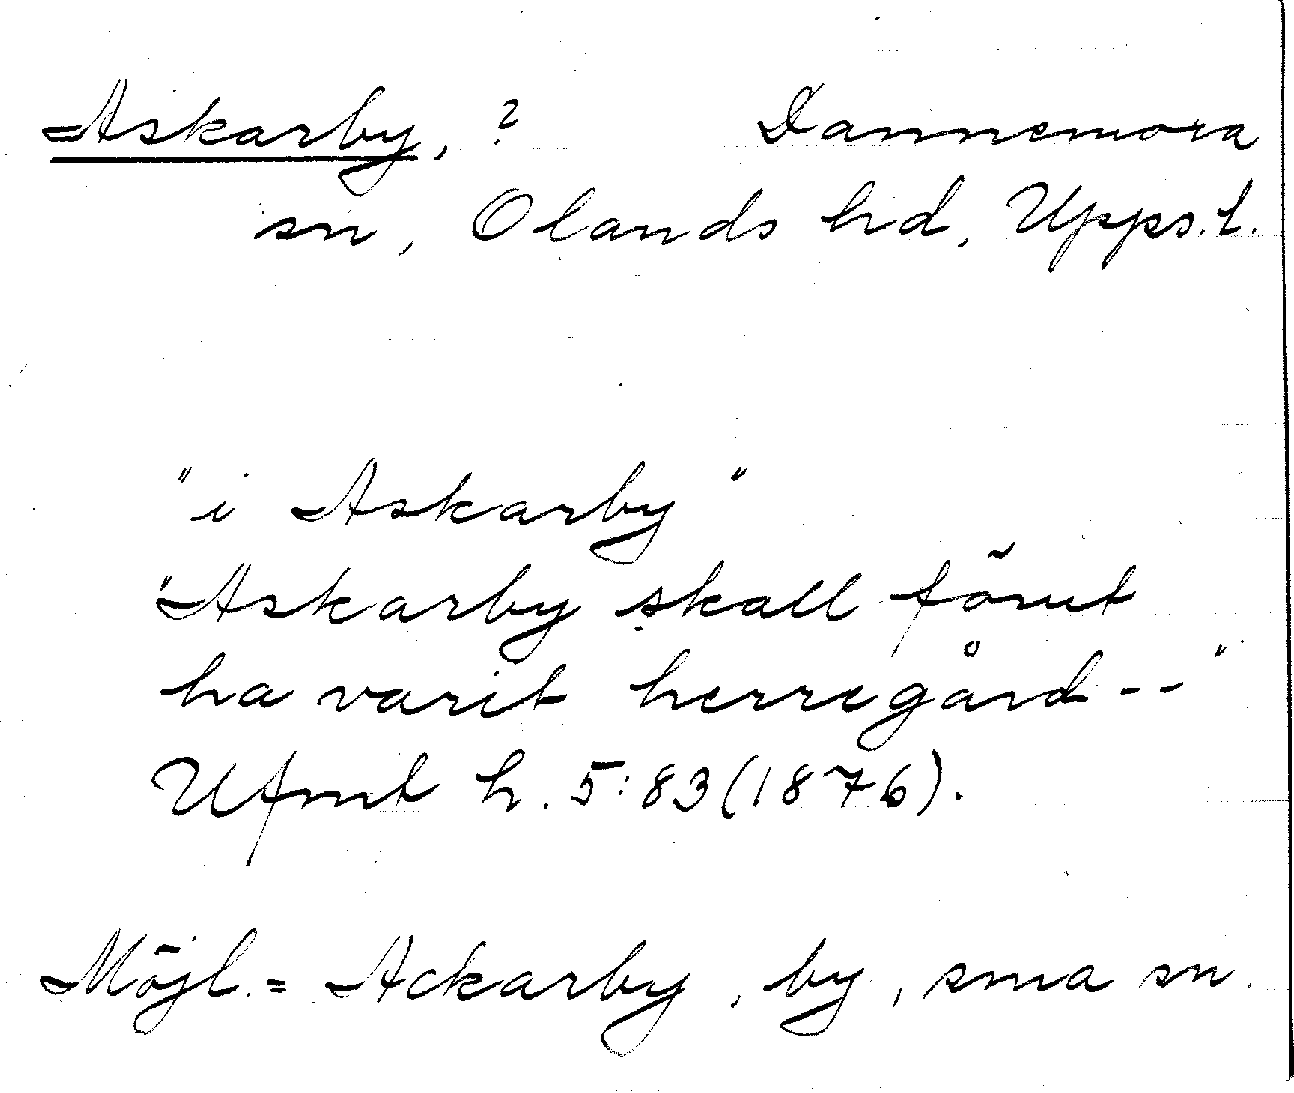 Askarby, ? Dannemora
sn, Olands hd, Upps.l.
"i Askarby"
"Askarby skall förut
ha varit herregård--"
Ufmt h. 5:83(1876).
Möjl.= Ackarby, by, sma sn.